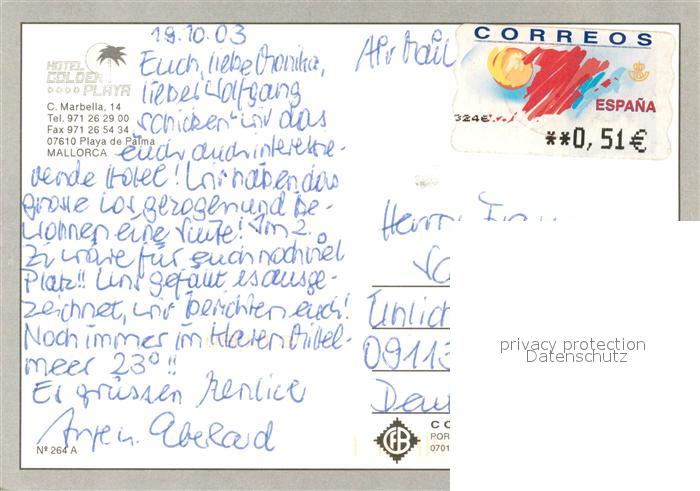 19.10.03
HOTEL
GOLDEN
PLAYA
C. Marbella, 14
Tel. 971 26 29 00
Fax 971 26 54 34
07610 Playa de Palma
MALLORCA
Euch, liebe Monika,
lieber Wolfgang
schicken wir das
euch auch interessie-
rende Hotel! Wir haben das
grosse Los gezogen und be-
wohnen eine Suite! Im 2.
Zi wäre für euch noch viel
Platz!! Uns gefällt es ausge-
zeichnet, wir berichten euch!
Noch immer im Haven Mittel-
meer 23° !!
Es grüssen herzlich
u. Eberhard
Nº 264 A
Air Mail
CORREOS
ESPAÑA
324€
**0,51€
Herrn
0911
privacy protection
Datenschutz
CFB